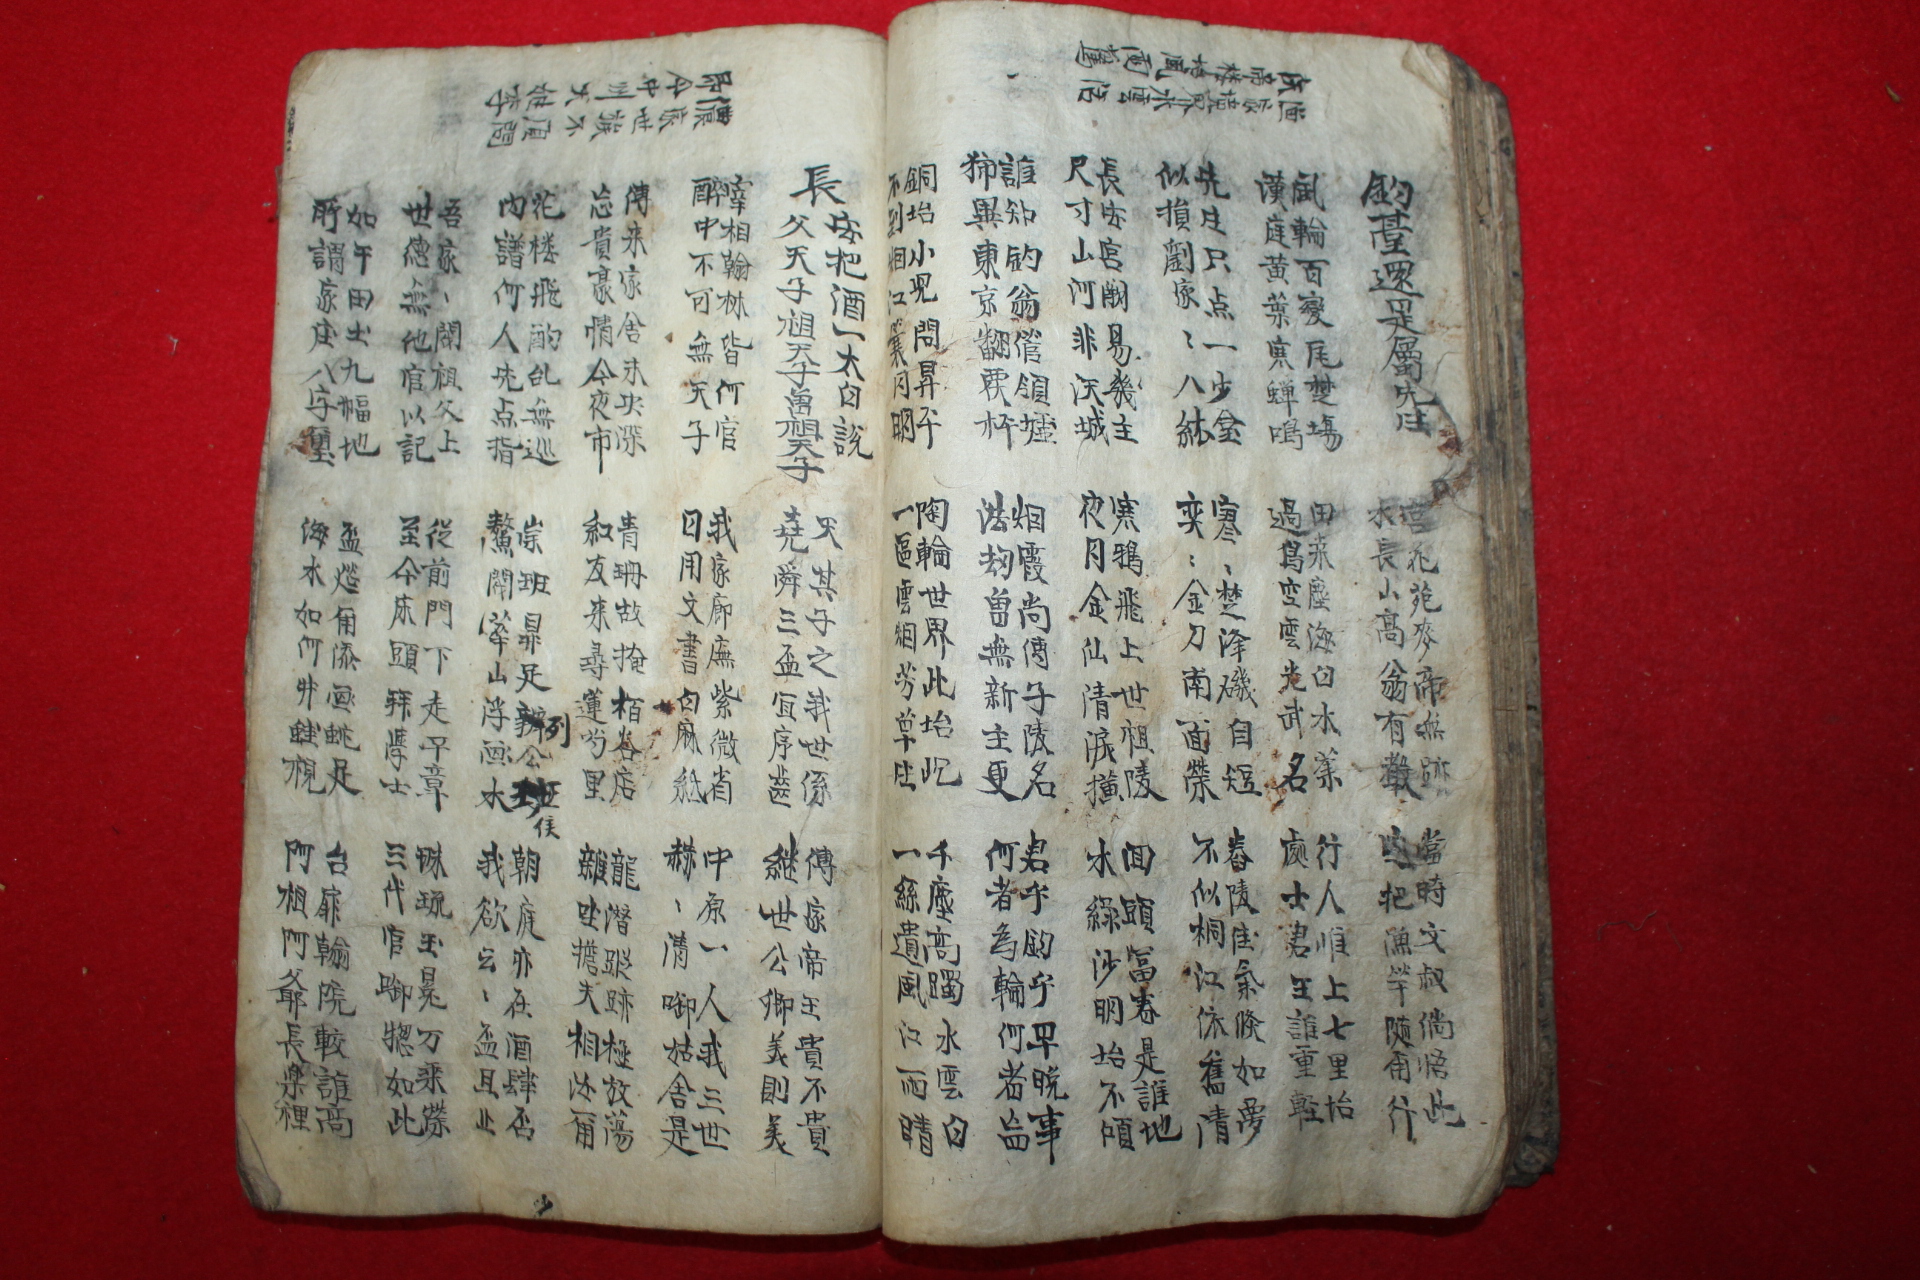 釣臺還是屬先生
水長山高翁有數
當時文叔倘悟此
把漁竿随甭行
風輪百變尾楚場
漢庭黃葉寒蟬鳴
田桑塵海白水業
過鳥空雲光武名
行人惟上七里坮
處士君王誰重輕
先生只点一步金
似損劉家〻八紘
寒〻楚澤磯自短
奕〻金刀南面榮
舂陵佳氣倏如夢
不似桐江依舊清
長安宮闕易幾主
尺寸山河非沃城
寒鴉飛上世祖陵
夜月金仙清淚橫
回頭富春是誰地
水綠沙明坮不頃
誰知釣翁管領壚
猶異東京翻覆枰
烟霞尚傳子陵名
浩劫曾無新主更
君乎釣乎早晩事
何者為輪何者益
銅坮小兒問昇平
不到湘江篆月明
陶輪世界此坮屹
一區雲烟芳草生
千塵高躅水雲白
一絲遺風江雨晴
長安把酒一太白說
父天子祖天子曽祖天子
天其子之我世係
堯舜三盃宜序齒
傳家帝王貴不貴
継世公卿美則美
宰相翰林皆何官
醉中不可無天子
我家廊廡紫微省
日用文書白麻紙
中原一人我三世
赫〻清啣姑舍是
傳来家舍未央深
忘貴豪情今夜市
青冊故掩栢谷店
紅友来尋蓮勺里
龍潛蹤跡極放蕩
雖坐擔夫相汝爾
花楼飛酌乱無巡
內譜何人先点指
崇班鼎足列公侯
鰲閣峯山浮画水
朝庭亦在酒肆否
我欲云〻盃且止
吾家〻閥祖父上
世德無他官以記
從前門下走平章
至今床頭拜學士
珠琉玉冕万乘榮
三代官啣揔如此
如午田出九幅地
所謂家庄八字璽
海水如何井蛙視
台扉翰院較誰高
阿祖阿爺長樂裡